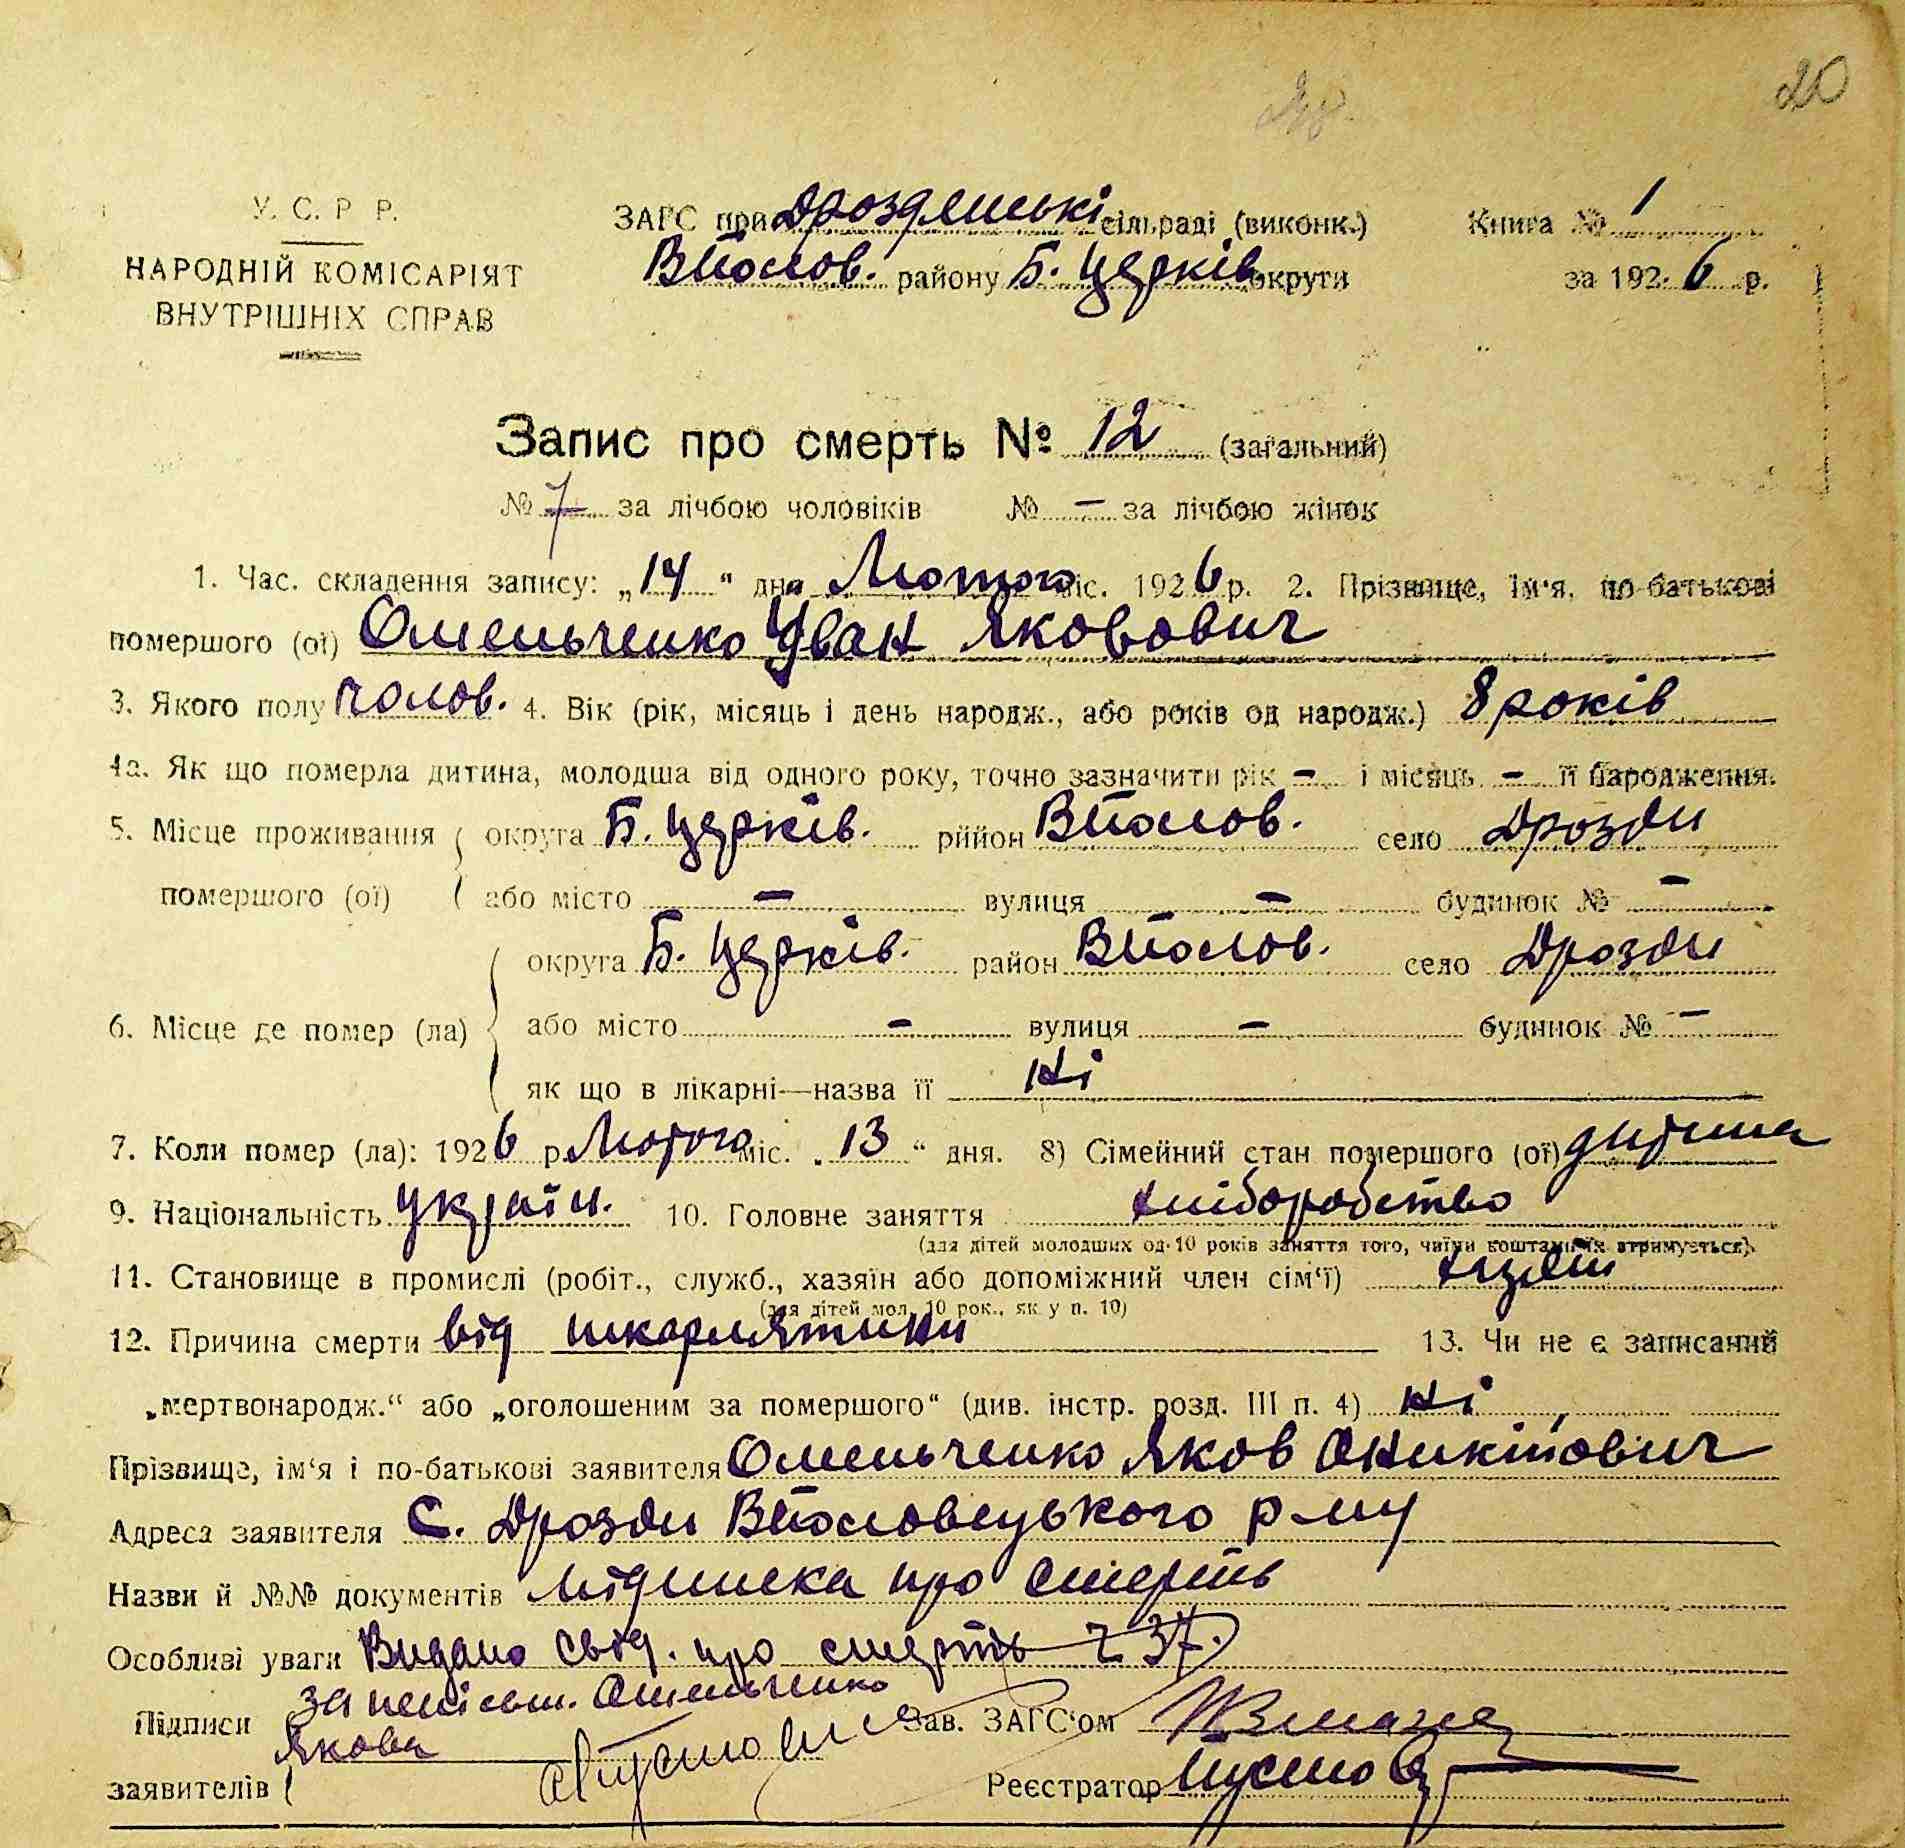 20
У. С. Р Р.
НАРОДНІЙ КОМІСАРІЯТ
ВНУТРІШНІХ СПРАВ
ЗАГС при Дроздянські сільраді (виконк.)
Книга № 1
району Б. Церків. округи
за 1926 р.
Запис про смерть № 12 (загальний)
№ 7 за лічбою чоловіків № – за лічбою жінок
1. Час. складення запису: „14“ дня Лютого міс. 1926 р. 2. Прізвище, ім'я, по-батькові
помершого (ої) Омельченко Іван Якович
3. Якого полу чолов. 4. Вік (рік, місяць і день народж., або років од народж.) 8 років
4а. Як що померла дитина, молодша від одного року, точно зазначити рік – і місяць – її народження.
5. Місце проживання округа Б. Церків. рййон село Дрозди
помершого (ої) або місто – вулиця – будинок № –
округа Б. Церків. район село Дрозди
6. Місце де помер (ла) або місто – вулиця – будинок № –
як що в лікарні—назва її ні
7. Коли помер (ла): 1926 р. Лютого міс. „13“ дня. 8) Сімейний стан помершого (ої) дитина
9. Національність україн. 10. Головне заняття хліборобство
(для дітей молодших од 10 років заняття того, чиїми коштами їх втримується).
11. Становище в промислі (робіт., служб., хазяїн або допоміжний член сім'ї) хазяїн
(для дітей мол. 10 рок., як у п. 10)
12. Причина смерти від шкарлятини 13. Чи не є записаний
„мертвонародж.“ або „оголошеним за помершого“ (див. інстр. розд. III п. 4) ні
Прізвище, ім'я і по-батькові заявителя Омельченко Яков Оникійович
Адреса заявителя С. Дрозди р-ну
Назви й №№ документів про смерть
Особливі уваги Видано свід. про смерть ч 37.
Підписи за неписьм. Омельченко
Якова
Зав. ЗАГС'ом
заявителів
Реєстратор